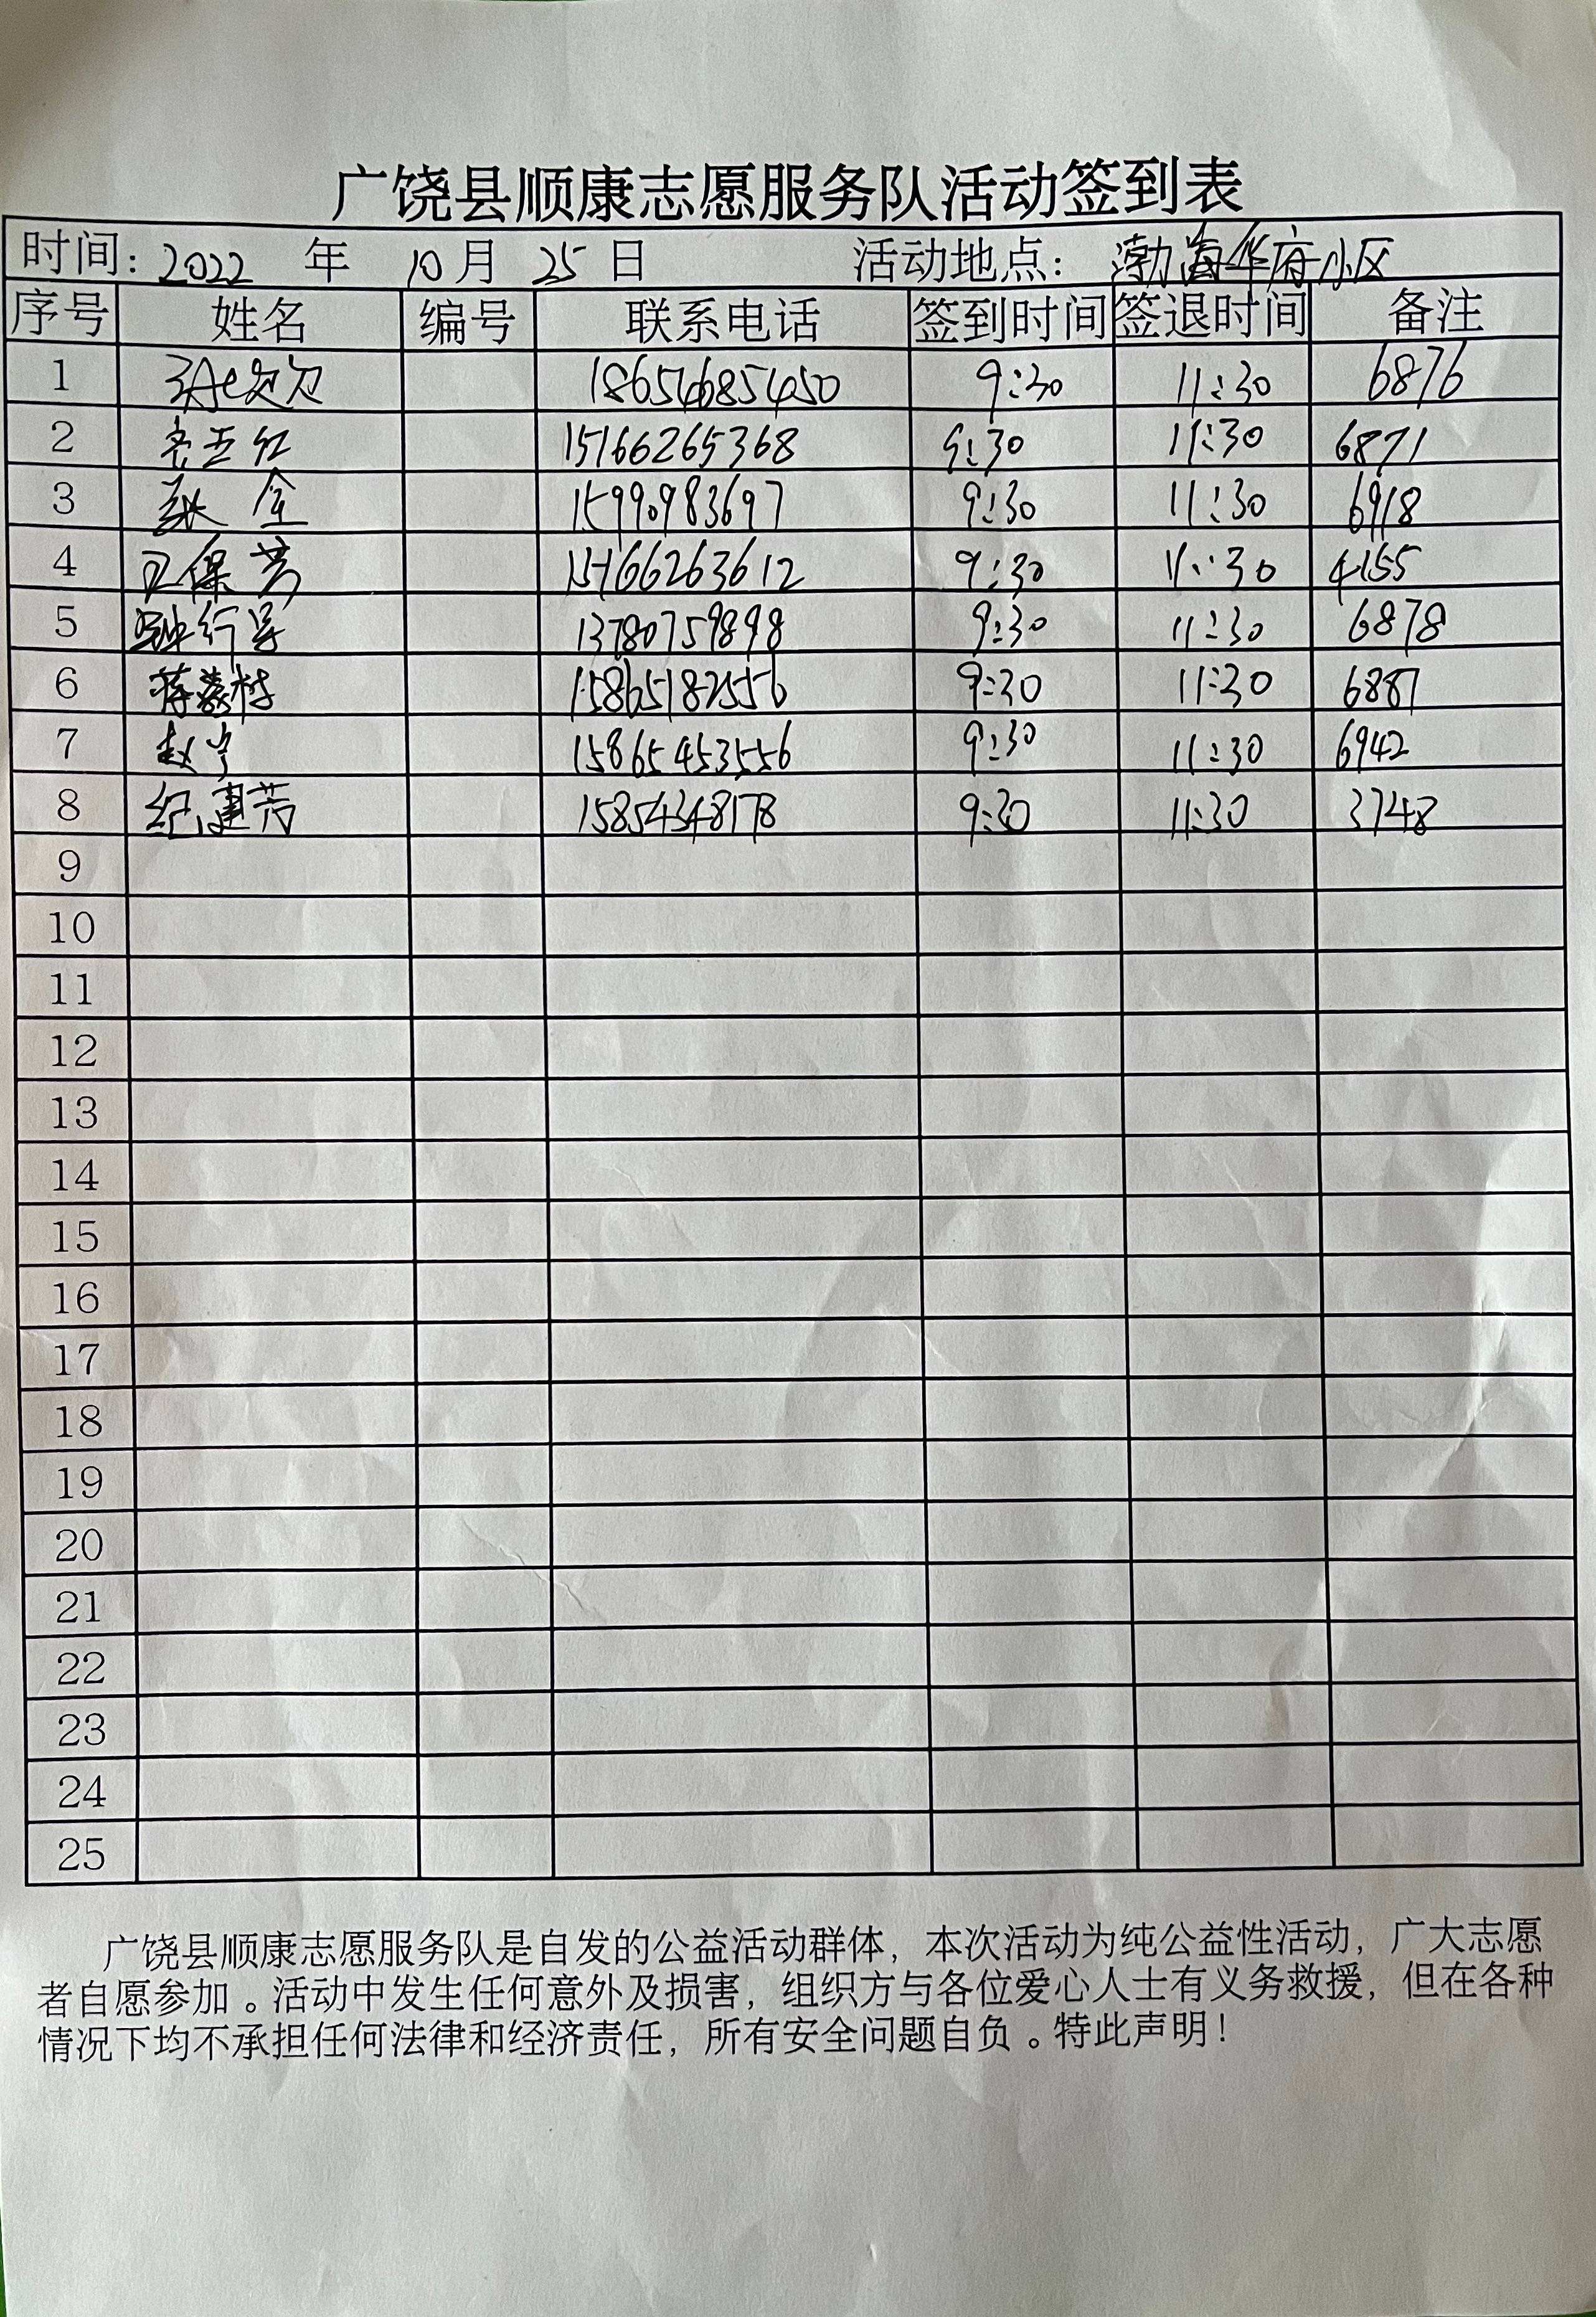 广饶县顺康志愿服务队活动签到表
时间：2022 年 10 月 25 日 活动地点：渤海华府小区
序号 姓名 编号 联系电话 签到时间 签退时间 备注
1 18654685450 9:30 11:30 6876
2 15166265368 9:30 11:30 6871
3 金 15990983697 9:30 11:30 6918
4 保芳 15166263612 9:30 11:30 4155
5 13780759898 9:30 11:30 6878
6 15865182556 9:30 11:30 6887
7 赵宁 15865453556 9:30 11:30 6942
8 纪建芳 15854348178 9:30 11:30 3748
9
10
11
12
13
14
15
16
17
18
19
20
21
22
23
24
25
广饶县顺康志愿服务队是自发的公益活动群体，本次活动为纯公益性活动，广大志愿
者自愿参加。活动中发生任何意外及损害，组织方与各位爱心人士有义务救援，但在各种
情况下均不承担任何法律和经济责任，所有安全问题自负。特此声明！